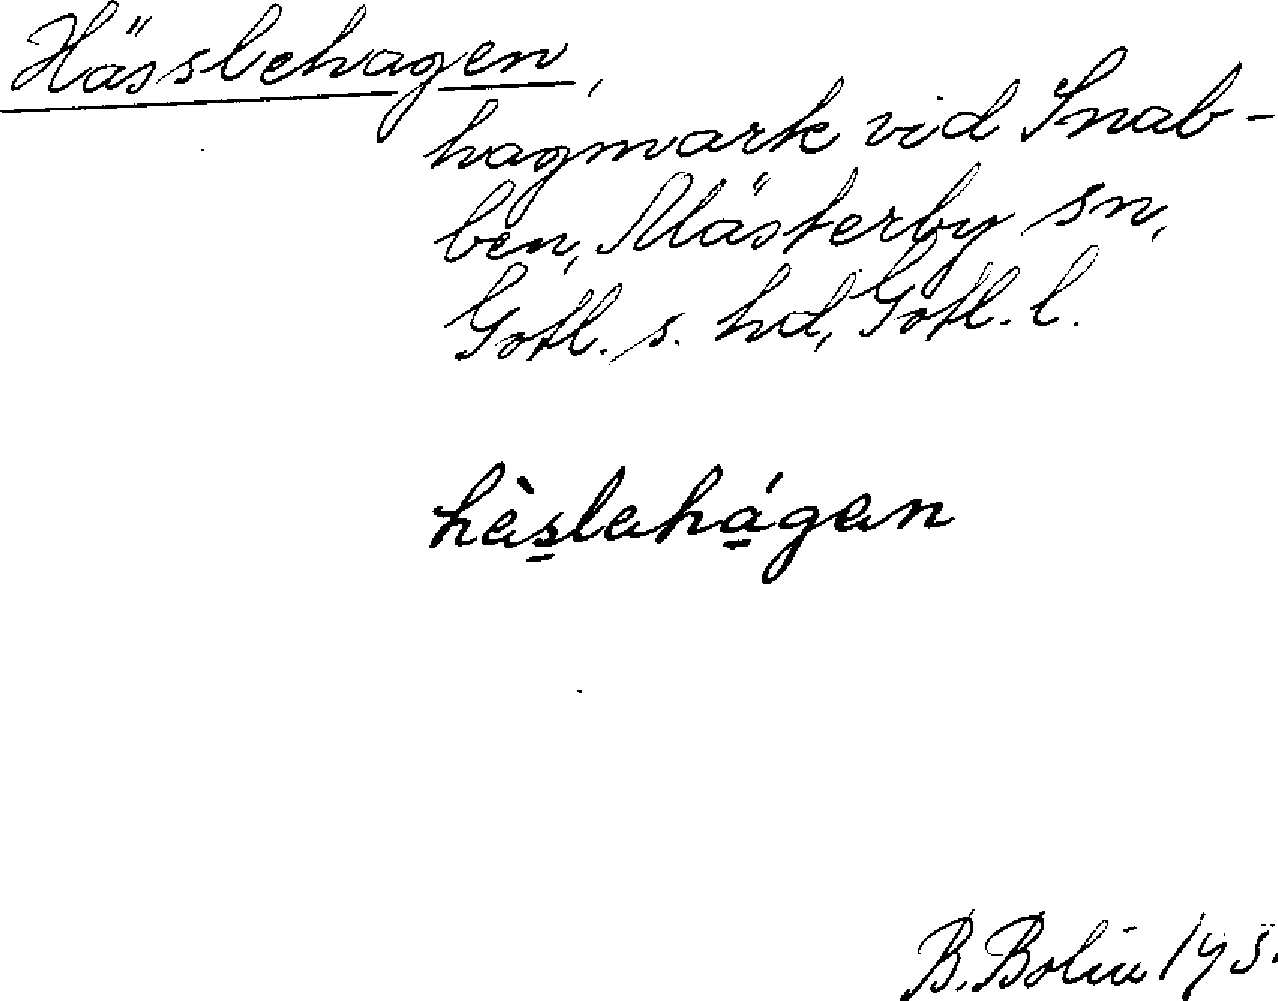 Hässlehagen,
hagmark vid Snab-
ben, Mästerby sn,
Gotl. s. hd, Gotl. l.
hàslahágan
B. Bolin